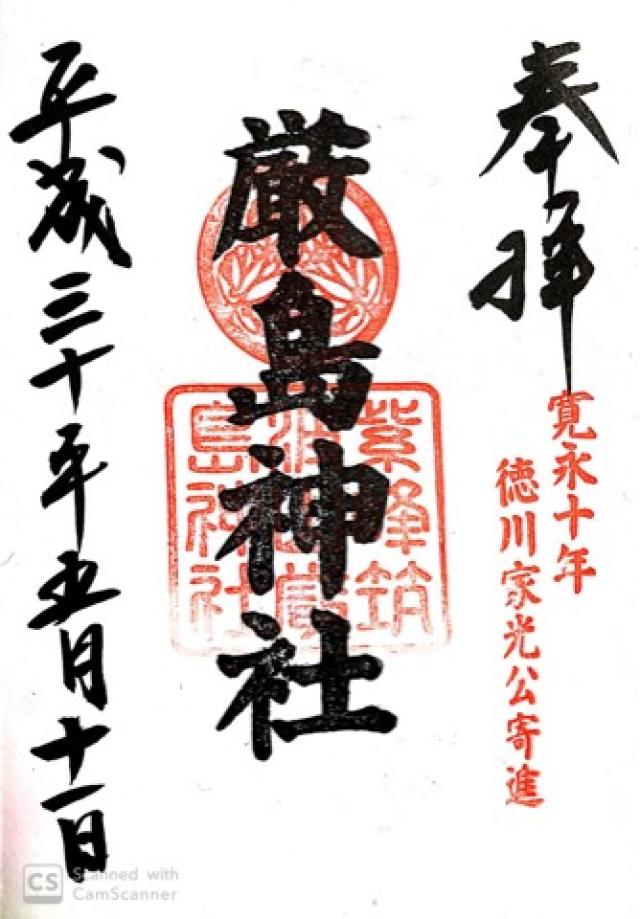 奉拝
寛永十年
徳川家光公寄進
厳島神社
紫峰筑
島神社
平成三十年五月十一日
CS Scanned with
CamScanner